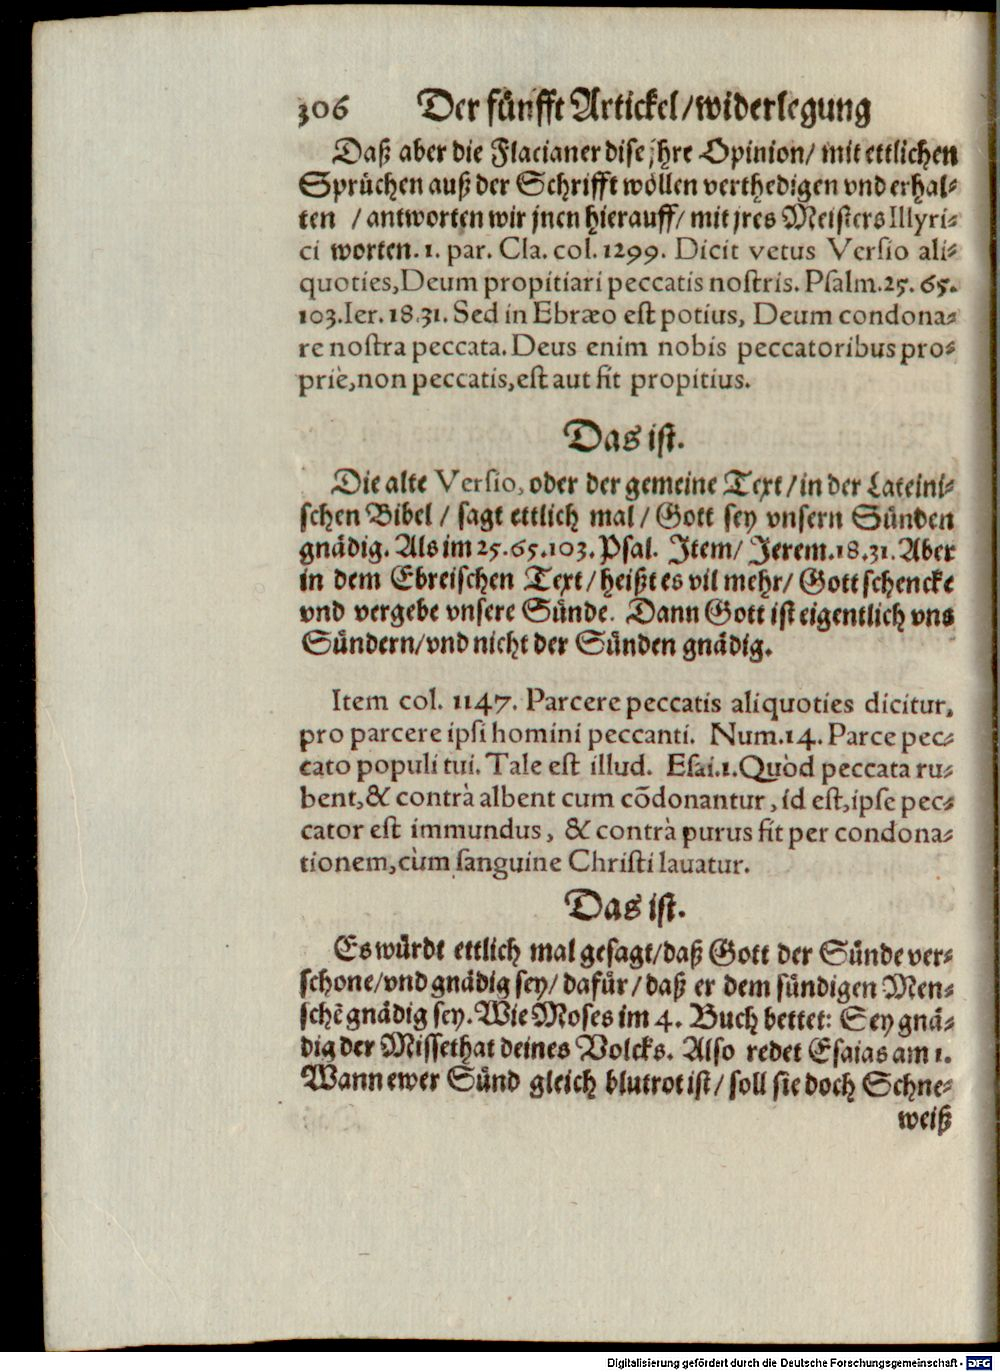 306 Der fünfft Artickel/widerlegung
Daß aber die Flacianer dise jhre Opinion/ mit ettlichen
Sprüchen auß der Schrifft wöllen verthedigen vnd erhal-
ten / antworten wir jnen hierauff/ mit jres Meisters Illyri-
ci worten. 1. par. Cla. col. 1299. Dicit vetus Versio ali-
quoties,Deum propitiari peccatis nostris. Psalm.25. 65.
103.Ier. 18.31. Sed in Ebræo est potius, Deum condona-
re nostra peccata. Deus enim nobis peccatoribus pro-
priè,non peccatis,est aut fit propitius.
Das ist.
Die alte Versio, oder der gemeine Text/in der Lateini-
schen Bibel / sagt ettlich mal/ Gott sey vnsern Sünden
gnädig. Als im 25.65.103. Psal. Item/ Jerem.18.31. Aber
in dem Ebreischen Text/heißt es vil mehr/ Gott schencke
vnd vergebe vnsere Sünde. Dann Gott ist eigentlich vns
Sündern/vnd nicht der Sünden gnädig.
Item col. 1147. Parcere peccatis aliquoties dicitur,
pro parcere ipsi homini peccanti. Num.14. Parce pec-
cato populi tui. Tale est illud. Esai.1.Quòd peccata ru-
bent,& contrà albent cum cõdonantur, id est,ipse pec-
cator est immundus, & contrà purus fit per condona-
tionem,cùm sanguine Christi lauatur.
Das ist.
Es würdt ettlich mal gesagt/daß Gott der Sünde ver-
schone/vnd gnädig sey/ dafür/daß er dem sündigen Men-
schẽ gnädig sey. Wie Moses im 4. Buch bettet: Sey gnä-
dig der Missethat deines Volcks. Also redet Esaias am 1.
Wann ewer Sünd gleich blutrot ist/ soll sie doch Schne-
weiß
Digitalisierung gefördert durch die Deutsche Forschungsgemeinschaft - DFG